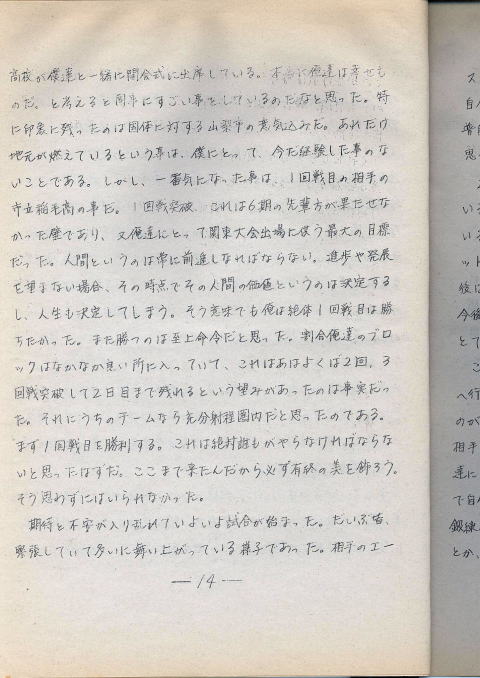 高校が僕達と一緒に開会式に出席している。本当に俺達は幸せも
のだ。と考えると同時にすごい事をしているのだなと思った。特
に印象に残ったのは国体に対する山梨市の意気込みだ。あれだけ
地元が燃えているという事は、僕にとって、今だ経験した事のな
いことである。しかし、一番気になった事は、1回戦目の相手の
市立稲毛高の事だ。1回戦突破、これは6期の先輩方が果たせな
かった壁であり、又俺達にとって関東大会出場に次ぐ最大の目標
だった。人間というのは常に前進しなればならない。進歩や発展
を望まない場合、その時点でその人間の価値というのは決定する
し、人生も決定してしまう。そう意味でも俺は絶体1回戦目は勝
ちたかった。また勝つのは至上命令だと思った。割合俺達のブロ
ックはなかなか良い所に入っていて、これはあはよくば2回、3
回戦突破して2日目まで残れるという望みがあったのは事実だっ
た。それにうちのチームなら充分射程圏内だと思ったのである。
まず1回戦目を勝利する。これは絶対誰もがやらなければならな
いと思ったはずだ。ここまで来たんだから必ず有終の美を飾ろう。
そう思わずにはいられなかった。
期待と不安が入り乱れていよいよ試合が始まった。だいぶ皆、
緊張していて多いに舞い上がっている様子であった。相手のエー
—14—
ス
自
思
いる
いる
ット
後は
今後
とて
こ
へ行
のが
相手
達に
で自
鍛練
とか、